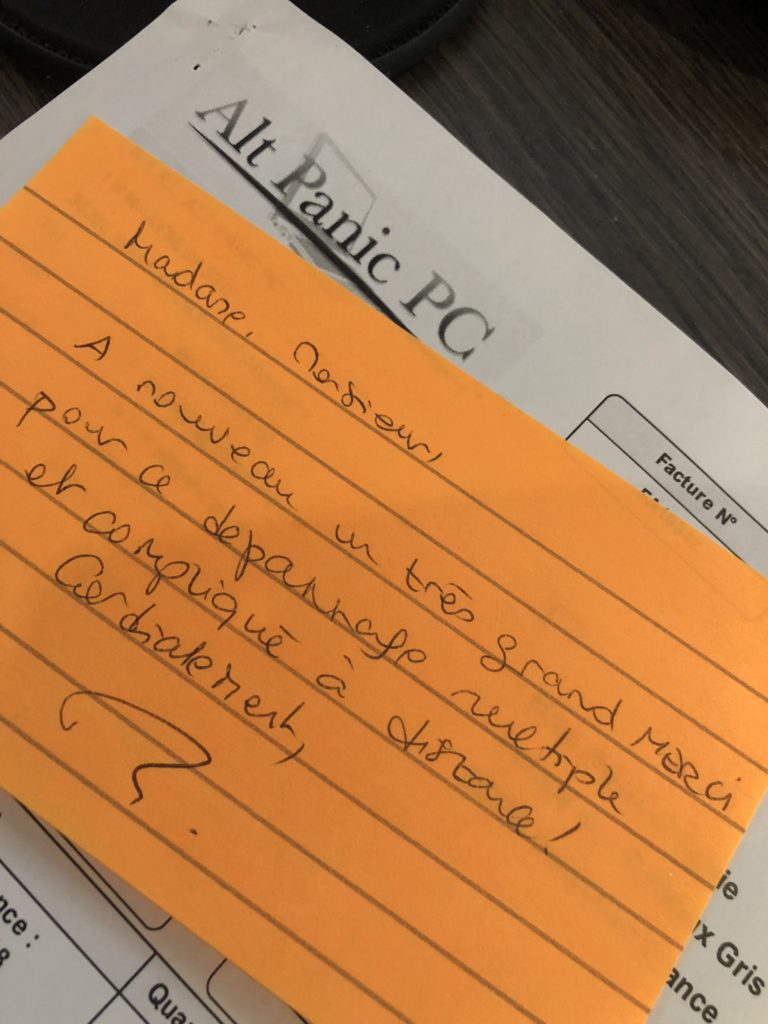 Alt Panic PC
Facture N°
Madame, Monsieur,
A nouveau un très grand merci
pour ce dépannage multiple
et compliqué à distance!
Cordialement,
x Gris
nce :
8